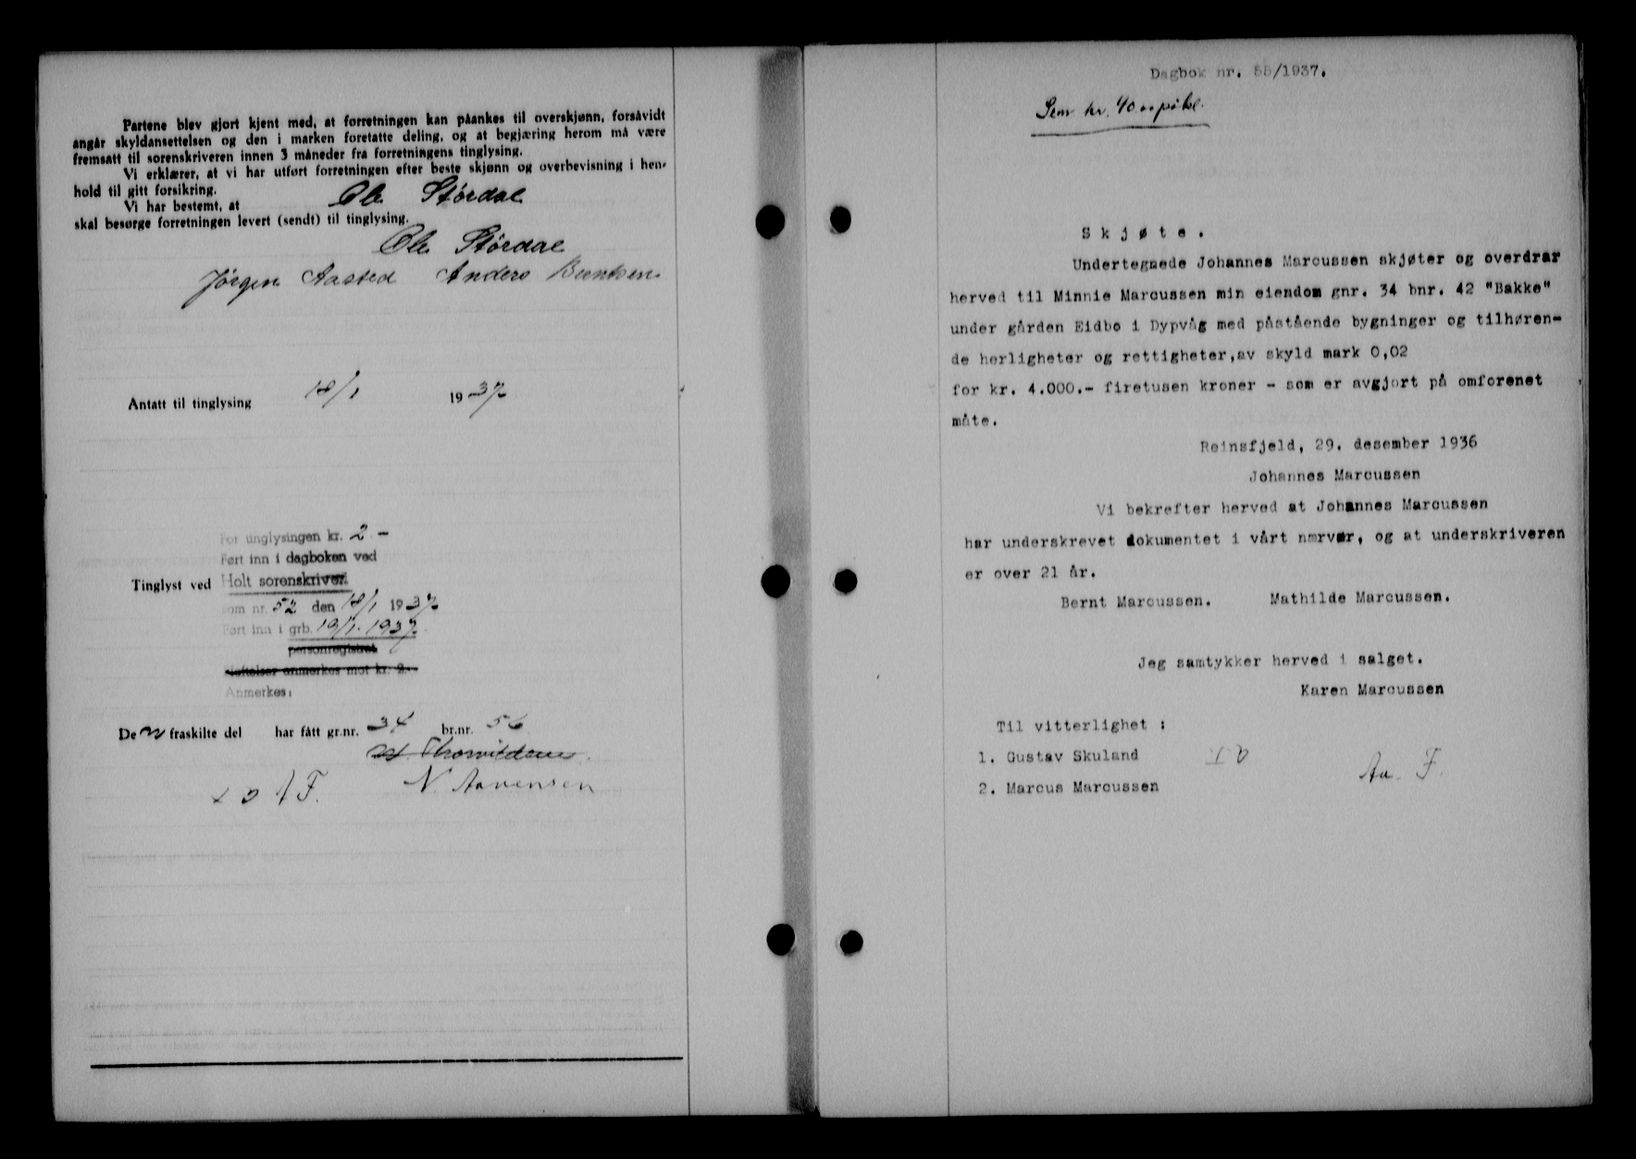 Partene blev gjort kjent med, at forretningen kan påankes til overskjønn, forsåvidt
angår skyldansettelsen og den i marken foretatte deling, og at begjæring herom må være
fremsatt til sorenskriveren innen 3 måneder fra forretningens tinglysing.
Vi erklærer, at vi har utført forretningen efter beste skjønn og overbevisning i hen-
hold til gitt forsikring.
Vi har bestemt, at Ole Stórdal
skal besørge forretningen levert (sendt) til tinglysing.
Ole Stórdal
Jörgen Aasted Anders Bentsen
Antatt til tinglysing 18/1 1937
For tinglysingen kr. 2 -
Ført inn i dagboken ved
Tinglyst ved Holt sorenskriveri
som nr. 52 den 18/1 1937
Ført inn i grb. 19/1. 1937
personregistret
Heftelser anmerkes mot kr. 2.-
Anmerkes:
Den fraskilte del har fått gr.nr. 34 br.nr. 56
N. Aavensen
Dagbok nr. 55/1937.
Sem kr. 40
Skjøte.
Undertegnede Johannes Marcussen skjøter og overdrar
herved til Minnie Marcussen min eiendom gnr. 34 bnr. 42 "Bakke"
under gården Eidbo i Dypvåg med påstående bygninger og tilhøren-
de herligheter og rettigheter,av skyld mark 0,02
for kr. 4.000.- firetusen kroner - som er avgjort på omforenet
måte.
Reinsfjeld, 29. desember 1936
Johannes Marcussen
Vi bekrefter herved at Johannes Marcussen
har underskrevet dokumentet i vårt nærvær, og at underskriveren
er over 21 år.
Bernt Marcussen. Mathilde Marcussen.
Jeg samtykker herved i salget.
Karen Marcussen
Til vitterlighet :
1. Gustav Skuland
2. Marcus Marcussen
Aa. F.